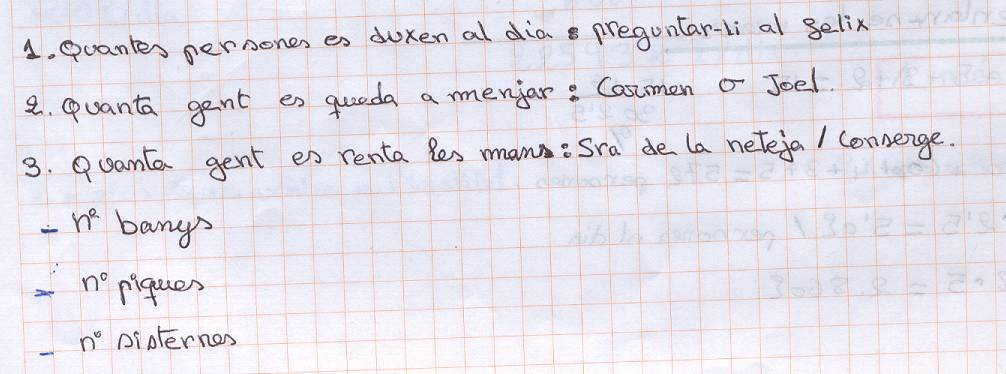 1. Quantes persones es duxen al dia : preguntar-li al Felix
2. Quanta gent es queda a menjar : Carmen o Joel.
3. Quanta gent es renta les mans : Sra de la neteja / Conserge.
- nº banys
- nº piques
- nº sisternes